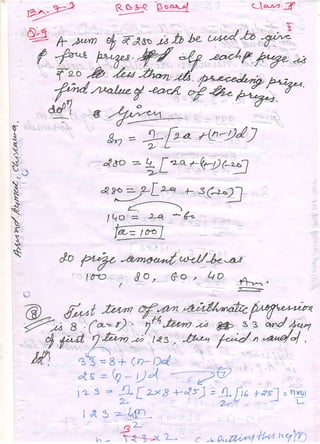 Ex. 9.3 RBSE Board Class X
Q.9 A sum of ₹280 is to be used to give
four prizes. If each prize is
₹20 less than its preceding prizes.
find value of each of the prizes.
Sol^n Given
S_n = n/2 [2a + (n-1)d]
280 = 4/2 [2a + (4-1)(-20)]
280 = 2[2a + 3(-20)]
140 = 2a - 60
a = 100
So prize amount will be as
100, 80, 60, 40 Ans.
(8) First term of an airthmatic progression
is 8. (a=8) n^th term is 33 and sum
of first n term is 123, then find n and d.
Sol^n 33 = 8 + (n-1)d
25 = (n-1)d
123 = n/2 [2×8 + 25] = n/2 [16 + 25]
123 = 41n/2
123×2